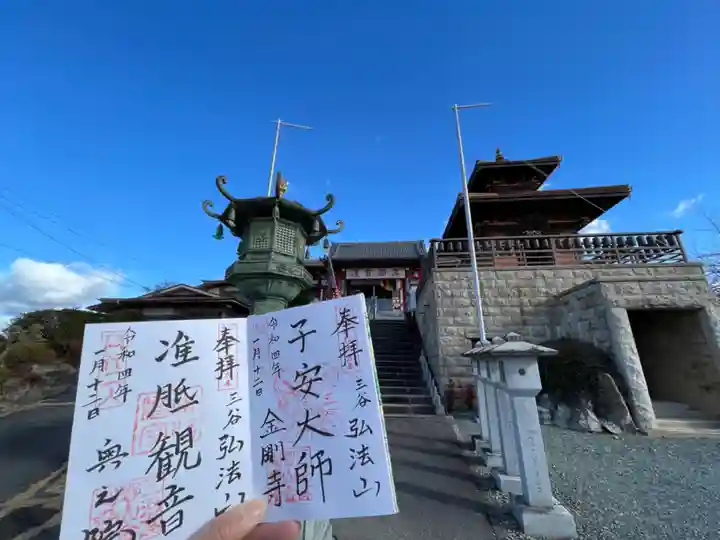 奉拝
三谷弘法山
子安大師
金剛寺
令和四年
一月十二日
奉拝
三谷弘法山
准胝観音
奥之院
令和四年
一月十二日